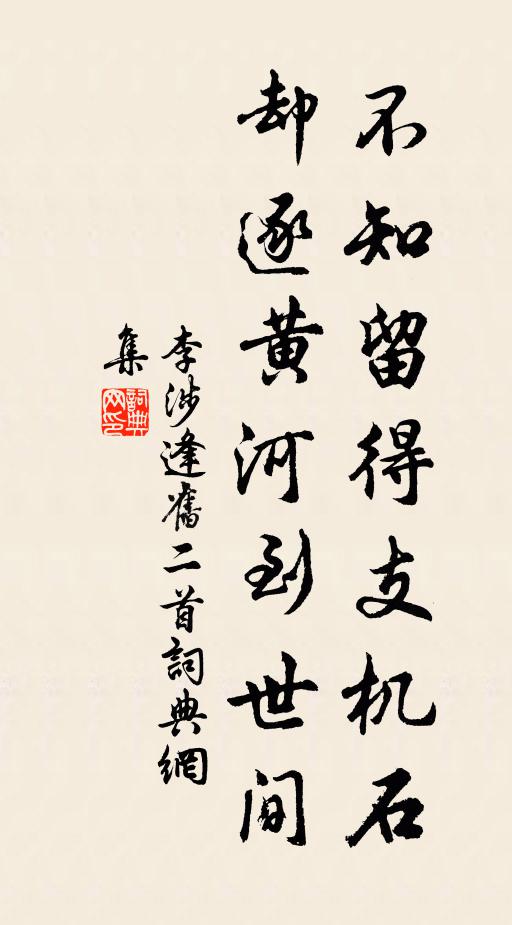 不知留得支机石
却逐黄河到世间
李涉逢舊二首詞典網
集
詞典
网印